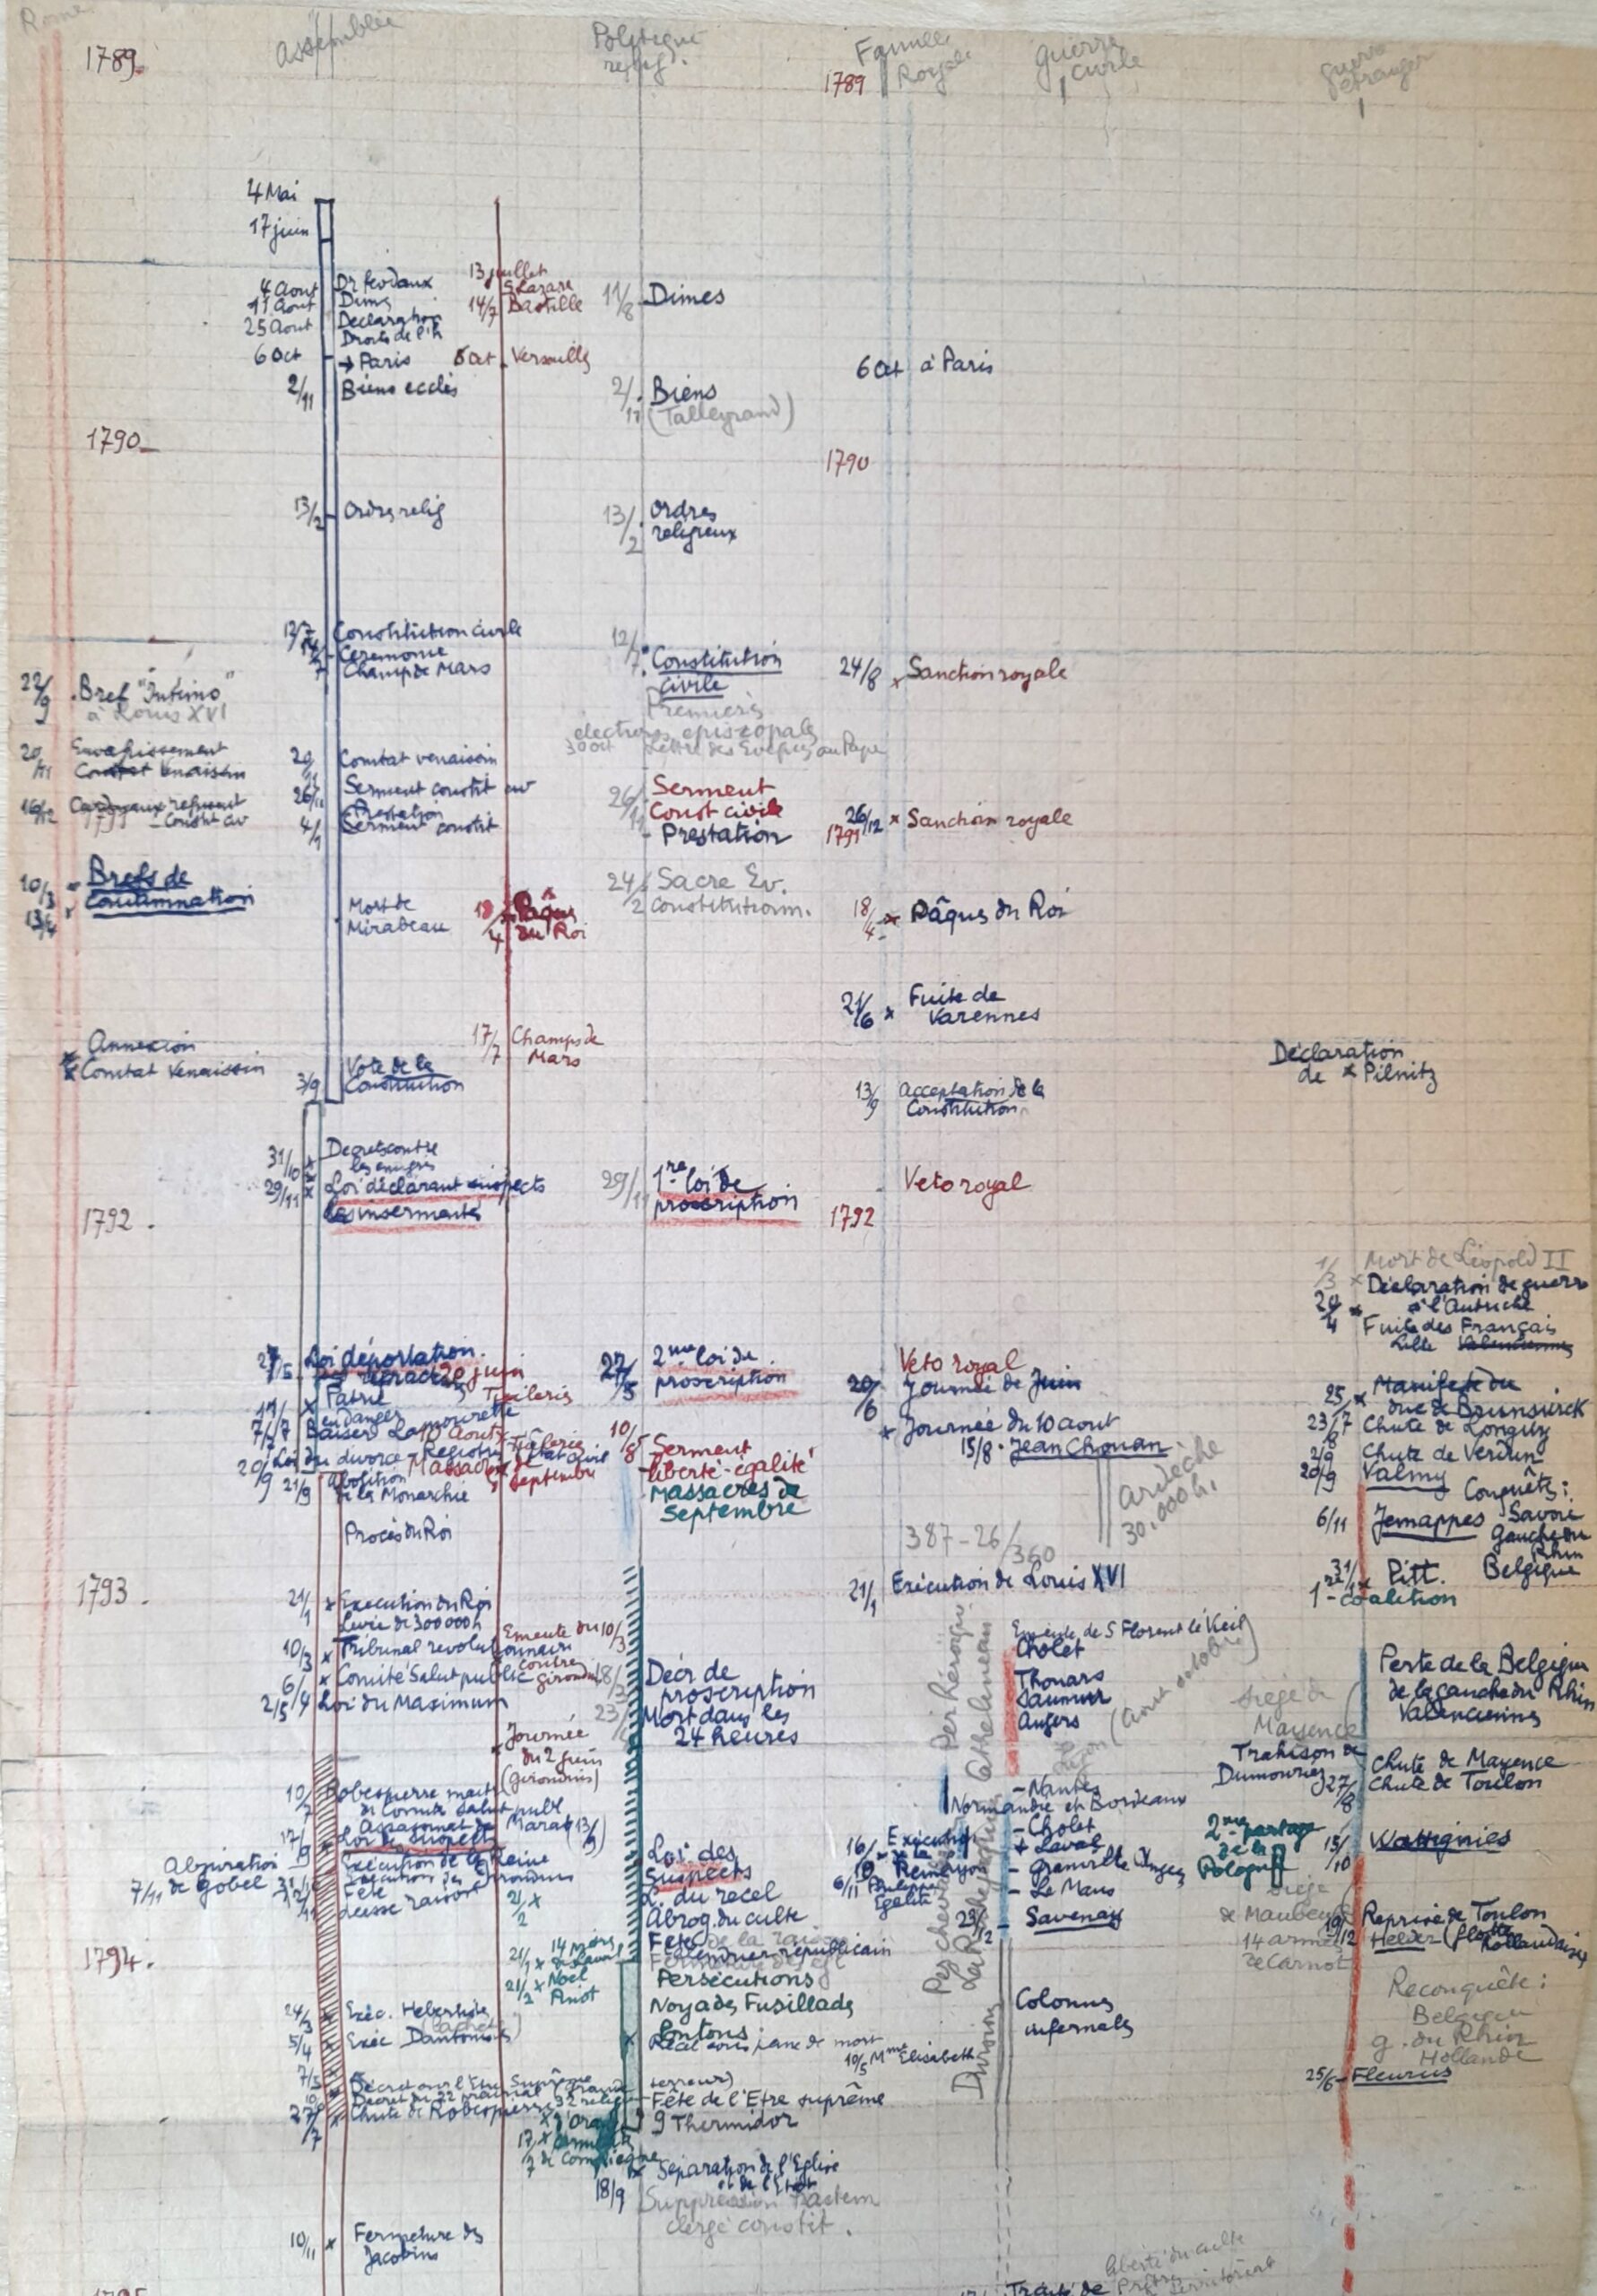 Rome
Assemblée
Politique
relig.
Famille
Royale
Guerre
Civile
Guerre
étranger
1789
1789
4 Mai
17 juin
4 Aout Dr feodaux
11 Aout Dimes
25 Aout Declaration
Droits de l'h
6 Oct → Paris
2/11 Biens ecclés
13 juillet
S Lazare
14/7 Bastille
6 Oct Versailles
11/8 Dimes
2/11 Biens
(Talleyrand)
6 Oct à Paris
1790
1790
13/2 Ordres relig
13/2 Ordres
religieux
12/7 Constitution civile
14/7 Ceremonie
Champ de Mars
12/7 Constitution
civile
Premières
élections épiscopales
30 oct Lettre des Evêques au Pape
24/8 Sanction royale
22/9 Bref "Intimo"
à Louis XVI
20/11 Envahissement
Comtat Venaissin
16/12
Const civ
20/11 Comtat venaissin
26/11 Serment constit civ
Prestation
4/1 Serment constit
26/11 Serment
Const civile
- Prestation
26/12 Sanction royale
1791
10/3 Brefs de
13/4 Condamnation
Mort de
Mirabeau
18/4 Pâques
du Roi
24/2 Sacre Ev.
constitutionn.
18/4 Pâques du Roi
21/6 Fuite de
Varennes
Annexion
Comtat Venaissin
17/7 Champs de
Mars
3/9 Vote de la
Constitution
13/9 Acceptation de la
Constitution
Déclaration
de Pilnitz
31/10 Decrets contre
les emigres
29/11 Loi déclarant suspects
les insermentés
29/11 1re loi de
proscription
Veto royal
1792
1792
1/3 Mort de Léopold II
20/4 Déclaration de guerre
à l'Autriche
Fuite des Français
Lille Valenciennes
27/5 Loi déportation
20 juin
Tuileries
11/7 Patrie
en danger
7/7 Baiser Lamourette
10 Aout Tuileries
20/9 Loi du divorce - Registres Etat civil
Massacres de
Septembre
21/9 Abolition
de la Monarchie
Procès du Roi
27/5 2me loi de
proscription
10/8 Serment
liberté-égalité
Massacres de
Septembre
Veto royal
20/6 Journée de Juin
Journée du 10 aout
15/8 - Jean Chouan
Ardèche
30.000 h.
387-26/360
25 Manifeste du
duc de Brunswick
23/8 Chute de Longwy
2/9 Chute de Verdun
20/9 Valmy
Conquêts:
6/11 Jemappes Savoie
Gauche du
Rhin
Belgique
Pitt.
1re coalition
1793
21/1 Exécution du Roi
Levée de 300 000 h
10/3 Tribunal revolutionnaire
6/4 Comité Salut public
2/5/4 Loi du Maximum
Emeute du 10/3
contre
girondins
Journée
du 2 juin
(girondins)
18/3 Décr de
proscription
23/ Mort dans les
24 heures
21/1 Exécution de Louis XVI
Per. héroïque
Cathelineau
Emeute de S Florent le Vieil
Cholet
Thouars
Saumur
Angers
- Nantes
Normandie et Bordeaux
- Cholet
+ Laval
- Granville Angers
- Le Mans
23/12 - Savenay
Perte de la Belgique
de la gauche du Rhin
Valenciennes
Siège de
Mayence
Trahison de
Dumouriez
Chute de Mayence
27/8 Chute de Toulon
10/7 Robespierre maitre
de Comité Salut publ
Assassinat de Marat (13/7)
17/9 Loi des suspects
Exécution de la Reine
Exécution des Girondins
Fête
déesse raison
Abjuration
7/11 de Gobel
Loi des
Suspects
L. du recel
Abrog. du culte
Fête de la raison
Calendrier républicain
16/ Exécution
de la
Reine
6/11 Philippe
Egalité
2me partage
de la
Pologne
15/10 Wattignies
Siège
de Maubeuge
14 armées
de Carnot
19/12 Reprise de Toulon
Helder (flotte
hollandaise
1794.
21/2
21/1 14 prêtres
de Laval
21/2 Noel
Pinot
Persécutions
Noyades Fusillades
Pontons
Recel sous peine de mort
10/5 Mme Elisabeth
24/3 Exéc. Hébertistes
5/4 Exéc Dantonistes
7/5 Décret sur l'Etre Suprême
Décret du 22 prairial (grande
terreur)
27/7 Chute de Robespierre
32 relig
d'Orange
17/7 Carmelites
de Compiègne
Fête de l'Etre suprême
9 Thermidor
18/9 Séparation de l'Eglise
et de l'Etat
clergé constit.
Colonnes
infernales
Reconquête:
Belgique
g. du Rhin
Hollande
25/6 Fleurus
10/11 Fermeture des
Jacobins
liberté du culte
Traité de